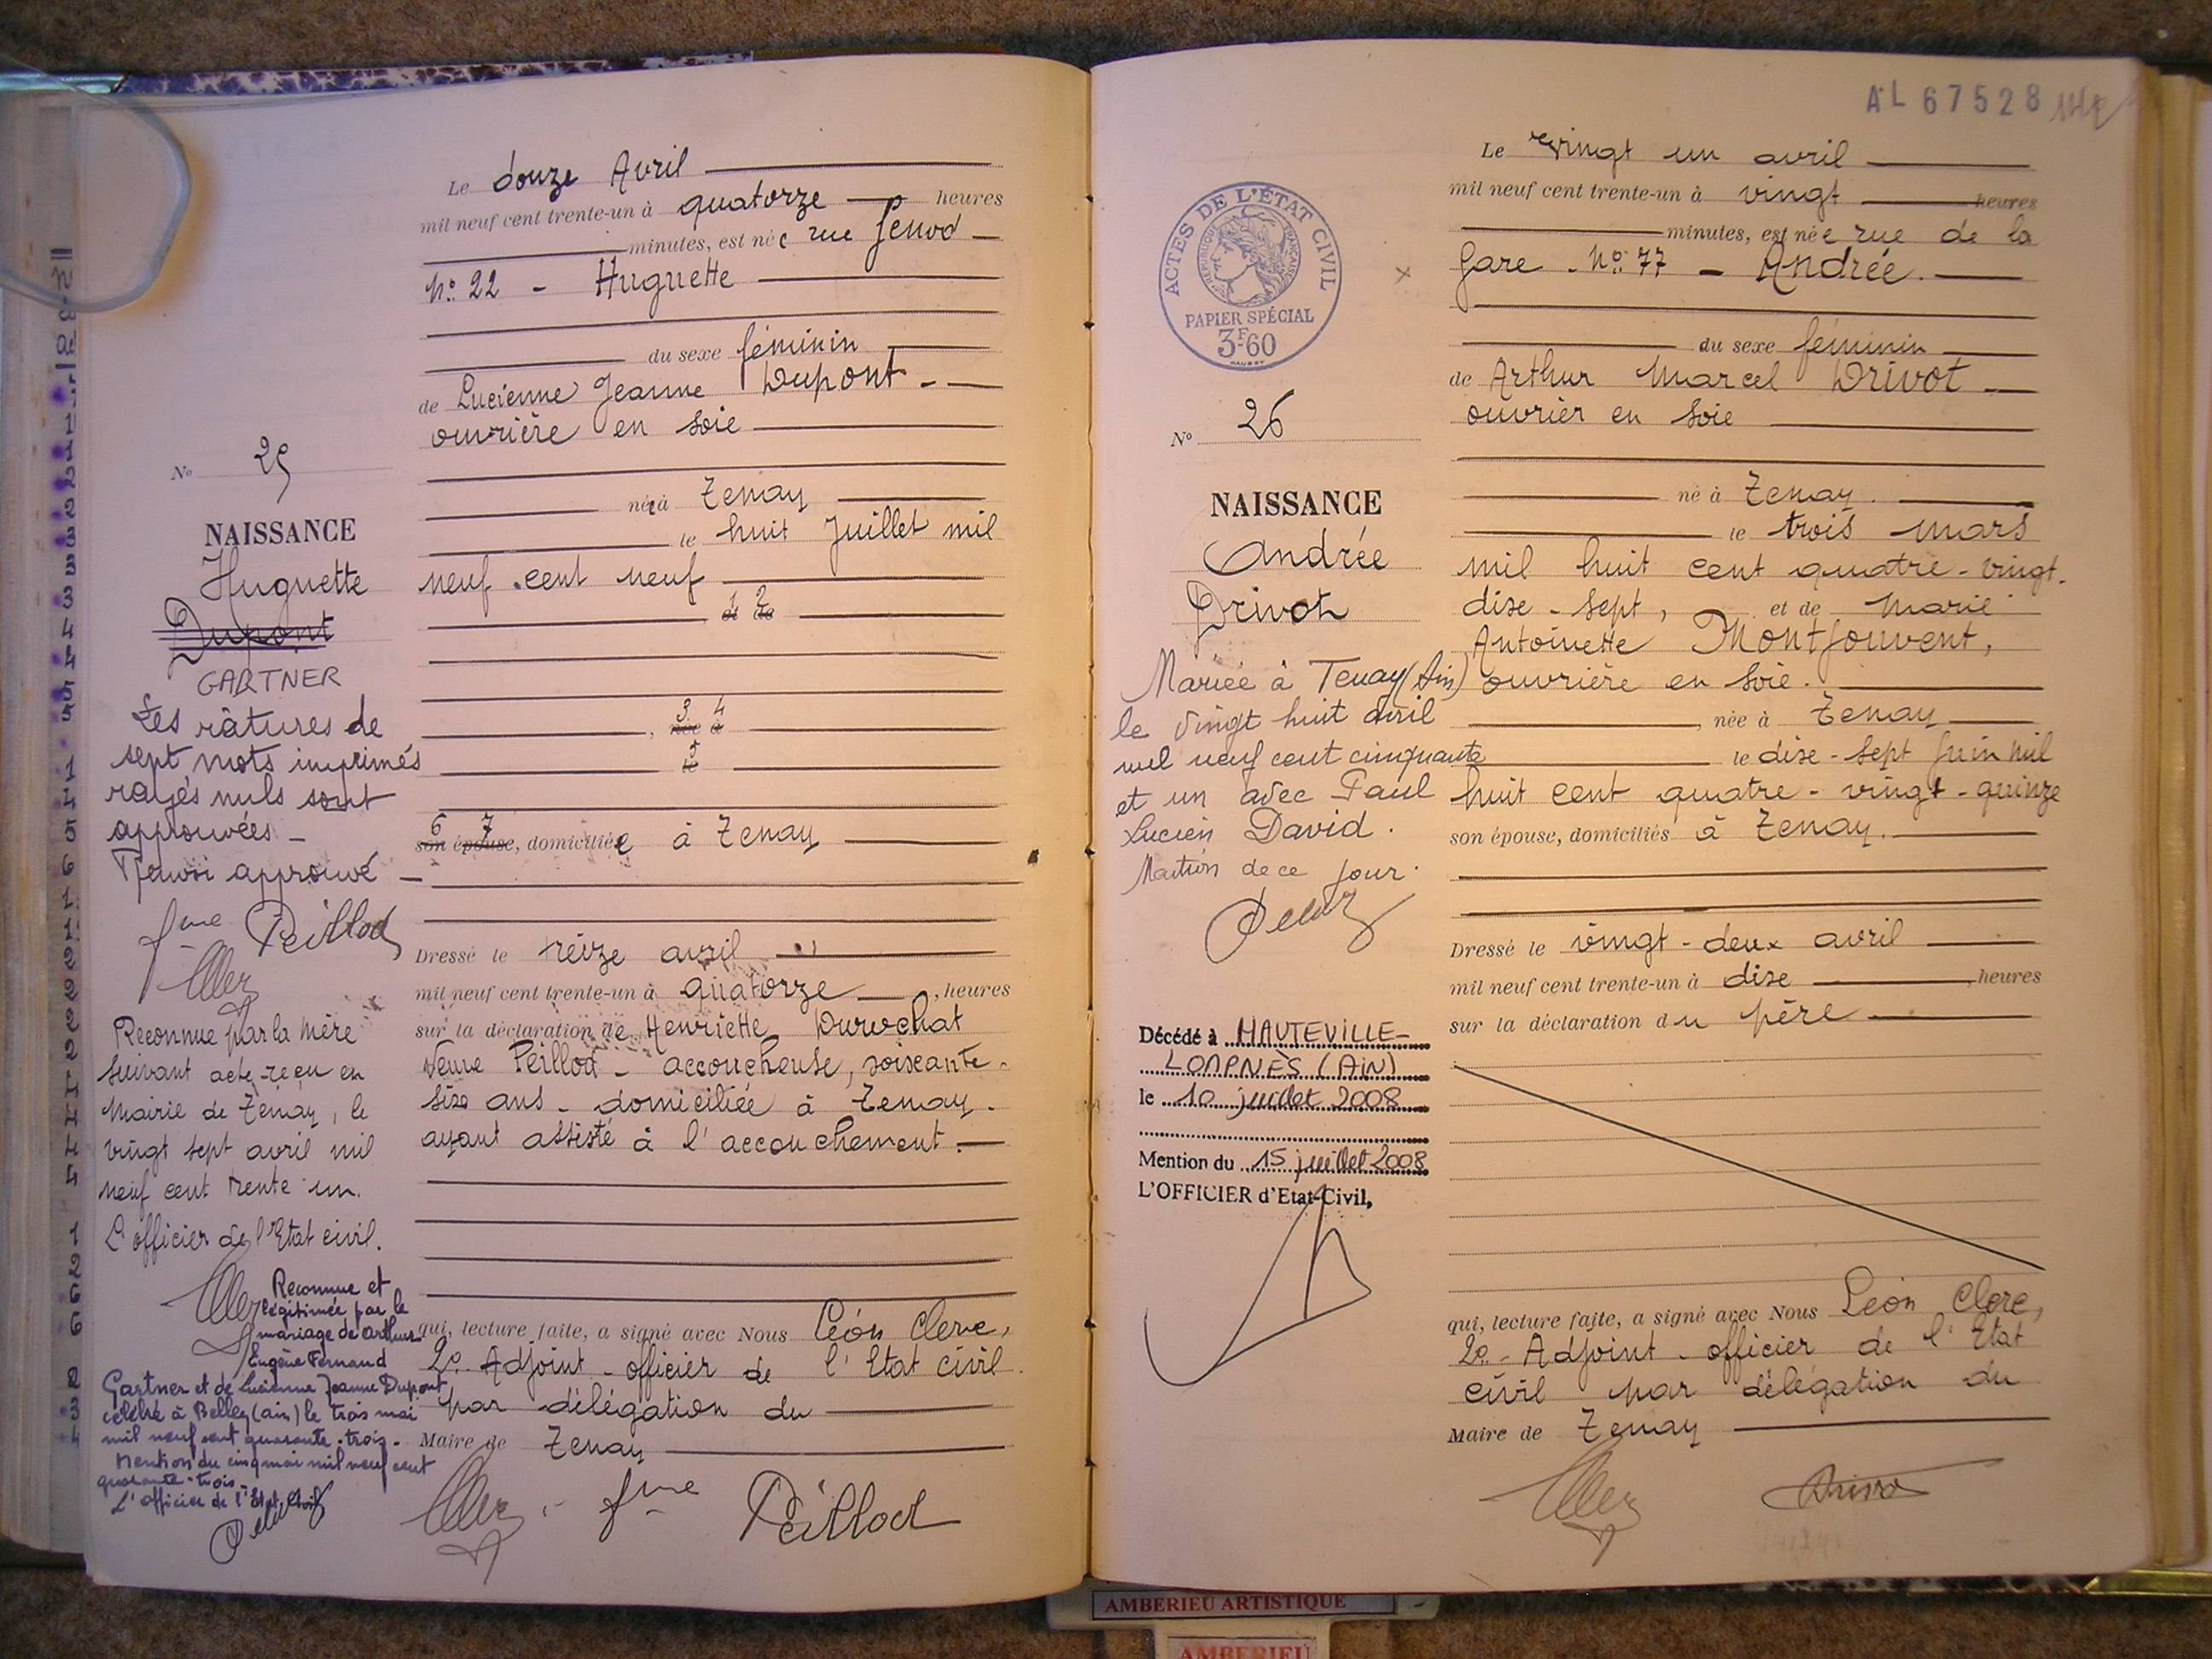 Le douze Avril
mil neuf cent trente-un à quatorze heures
minutes, est née rue Genod
No. 22 - Huguette
du sexe féminin
de Lucienne Jeanne Dupont
ouvrière en soie
née à Tenay
le huit Juillet mil
neuf cent neuf
1 2
de de
3 4
née à
5
le
6 7
son épouse, domiciliée à Tenay
Dressé le treize avril
mil neuf cent trente-un à quatorze, heures
sur la déclaration de Henriette Durochat
Veuve Peillod - accoucheuse, soixante-
six ans - domiciliée à Tenay -
ayant assisté à l'accouchement.
qui, lecture faite, a signé avec Nous Léon Clerc,
2e. Adjoint - officier de l'Etat civil
par délégation du
Maire de Tenay
fme Peillod
No 25
NAISSANCE
Huguette
Dupont
GARTNER
Les râtures de
sept mots imprimés
rayés nuls sont
approuvées -
Renvoi approuvé -
fme Peillod
Reconnue par la mère
suivant acte reçu en
Mairie de Tenay, le
vingt sept avril mil
neuf cent trente un.
L'officier de l'Etat civil.
Reconnue et
légitimée par le
mariage de Arthur
Eugène Fernand
Gartner et de Lucienne Jeanne Dupont
célébré à Belley (ain) le trois mai
mil neuf cent quarante-trois-
Mention du cinq mai mil neuf cent
quarante-trois-
L'officier de l'Etat civil
AL 67528
Le vingt un avril
mil neuf cent trente-un à vingt heures
minutes, est née rue de la
Gare - No. 77 - Andrée.
du sexe féminin
de Arthur Marcel Drivot
ouvrier en soie
né à Tenay.
le trois mars
mil huit cent quatre-vingt-
dixe-sept, et de Marie
Antoinette Montfouvent,
ouvrière en soie.
, née à Tenay
le dixe-sept Juin mil
huit cent quatre-vingt-quinze
son épouse, domiciliés à Tenay.
Dressé le vingt-deux avril
mil neuf cent trente-un à dixe, heures
sur la déclaration du père
qui, lecture faite, a signé avec Nous Léon Clerc,
2e. Adjoint - officier de l'Etat
civil par délégation du
Maire de Tenay
ACTES DE L'ÉTAT CIVIL
RÉPUBLIQUE FRANÇAISE
PAPIER SPÉCIAL
3F60
No 26
NAISSANCE
Andrée
Drivot
Mariée à Tenay (Ain)
le vingt huit avril
mil neuf cent cinquante
et un avec Paul
Lucien David.
Mention de ce jour.
Décédé à HAUTEVILLE-
LOMPNES (AIN)
le 10 juillet 2008
Mention du 15 juillet 2008
L'OFFICIER d'Etat-Civil,
AMBERIEU ARTISTIQUE
AMBERIEU